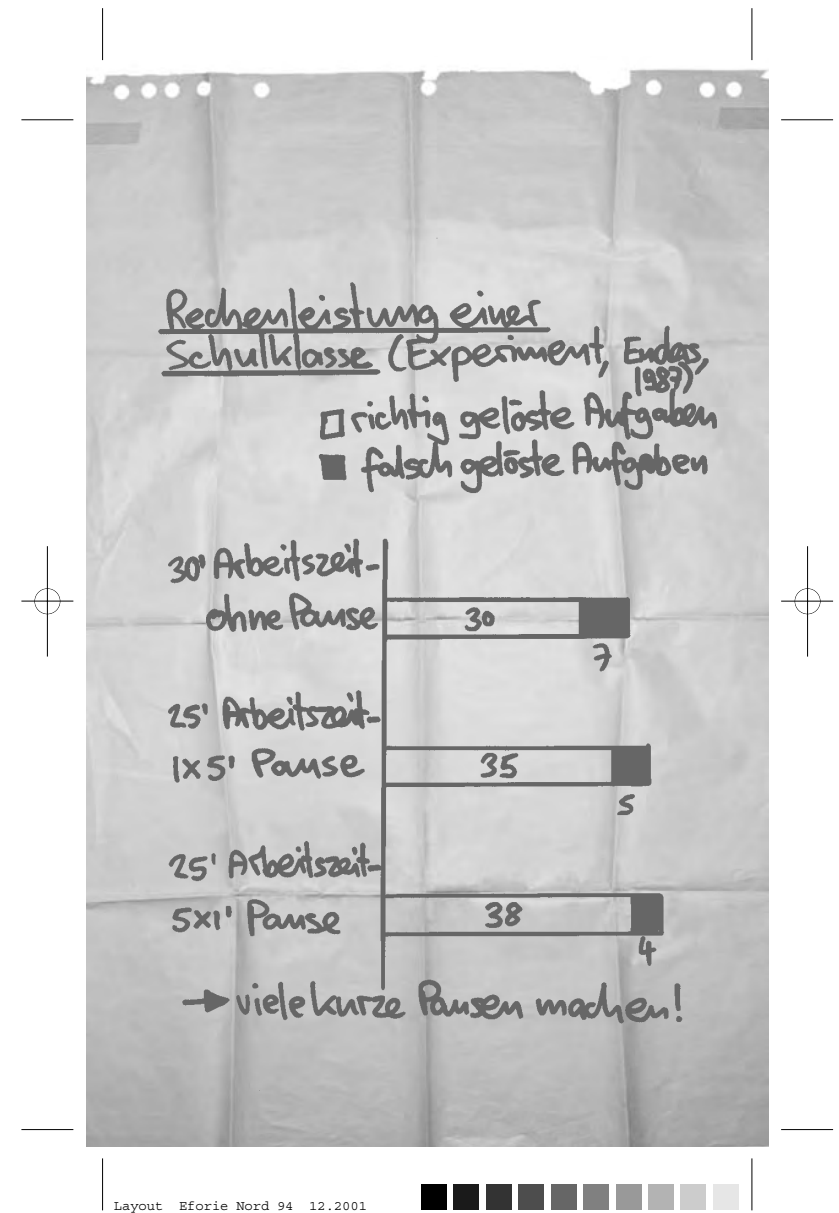 Rechenleistung einer
Schulklasse (Experiment, Enders,
1987)
richtig gelöste Aufgaben
falsch gelöste Aufgaben
30' Arbeitszeit-
ohne Pause 30
7
25' Arbeitszeit-
1x5' Pause 35
5
25' Arbeitszeit-
5x1' Pause 38
4
→ viele kurze Pausen machen!
Layout Eforie Nord 94 12.2001